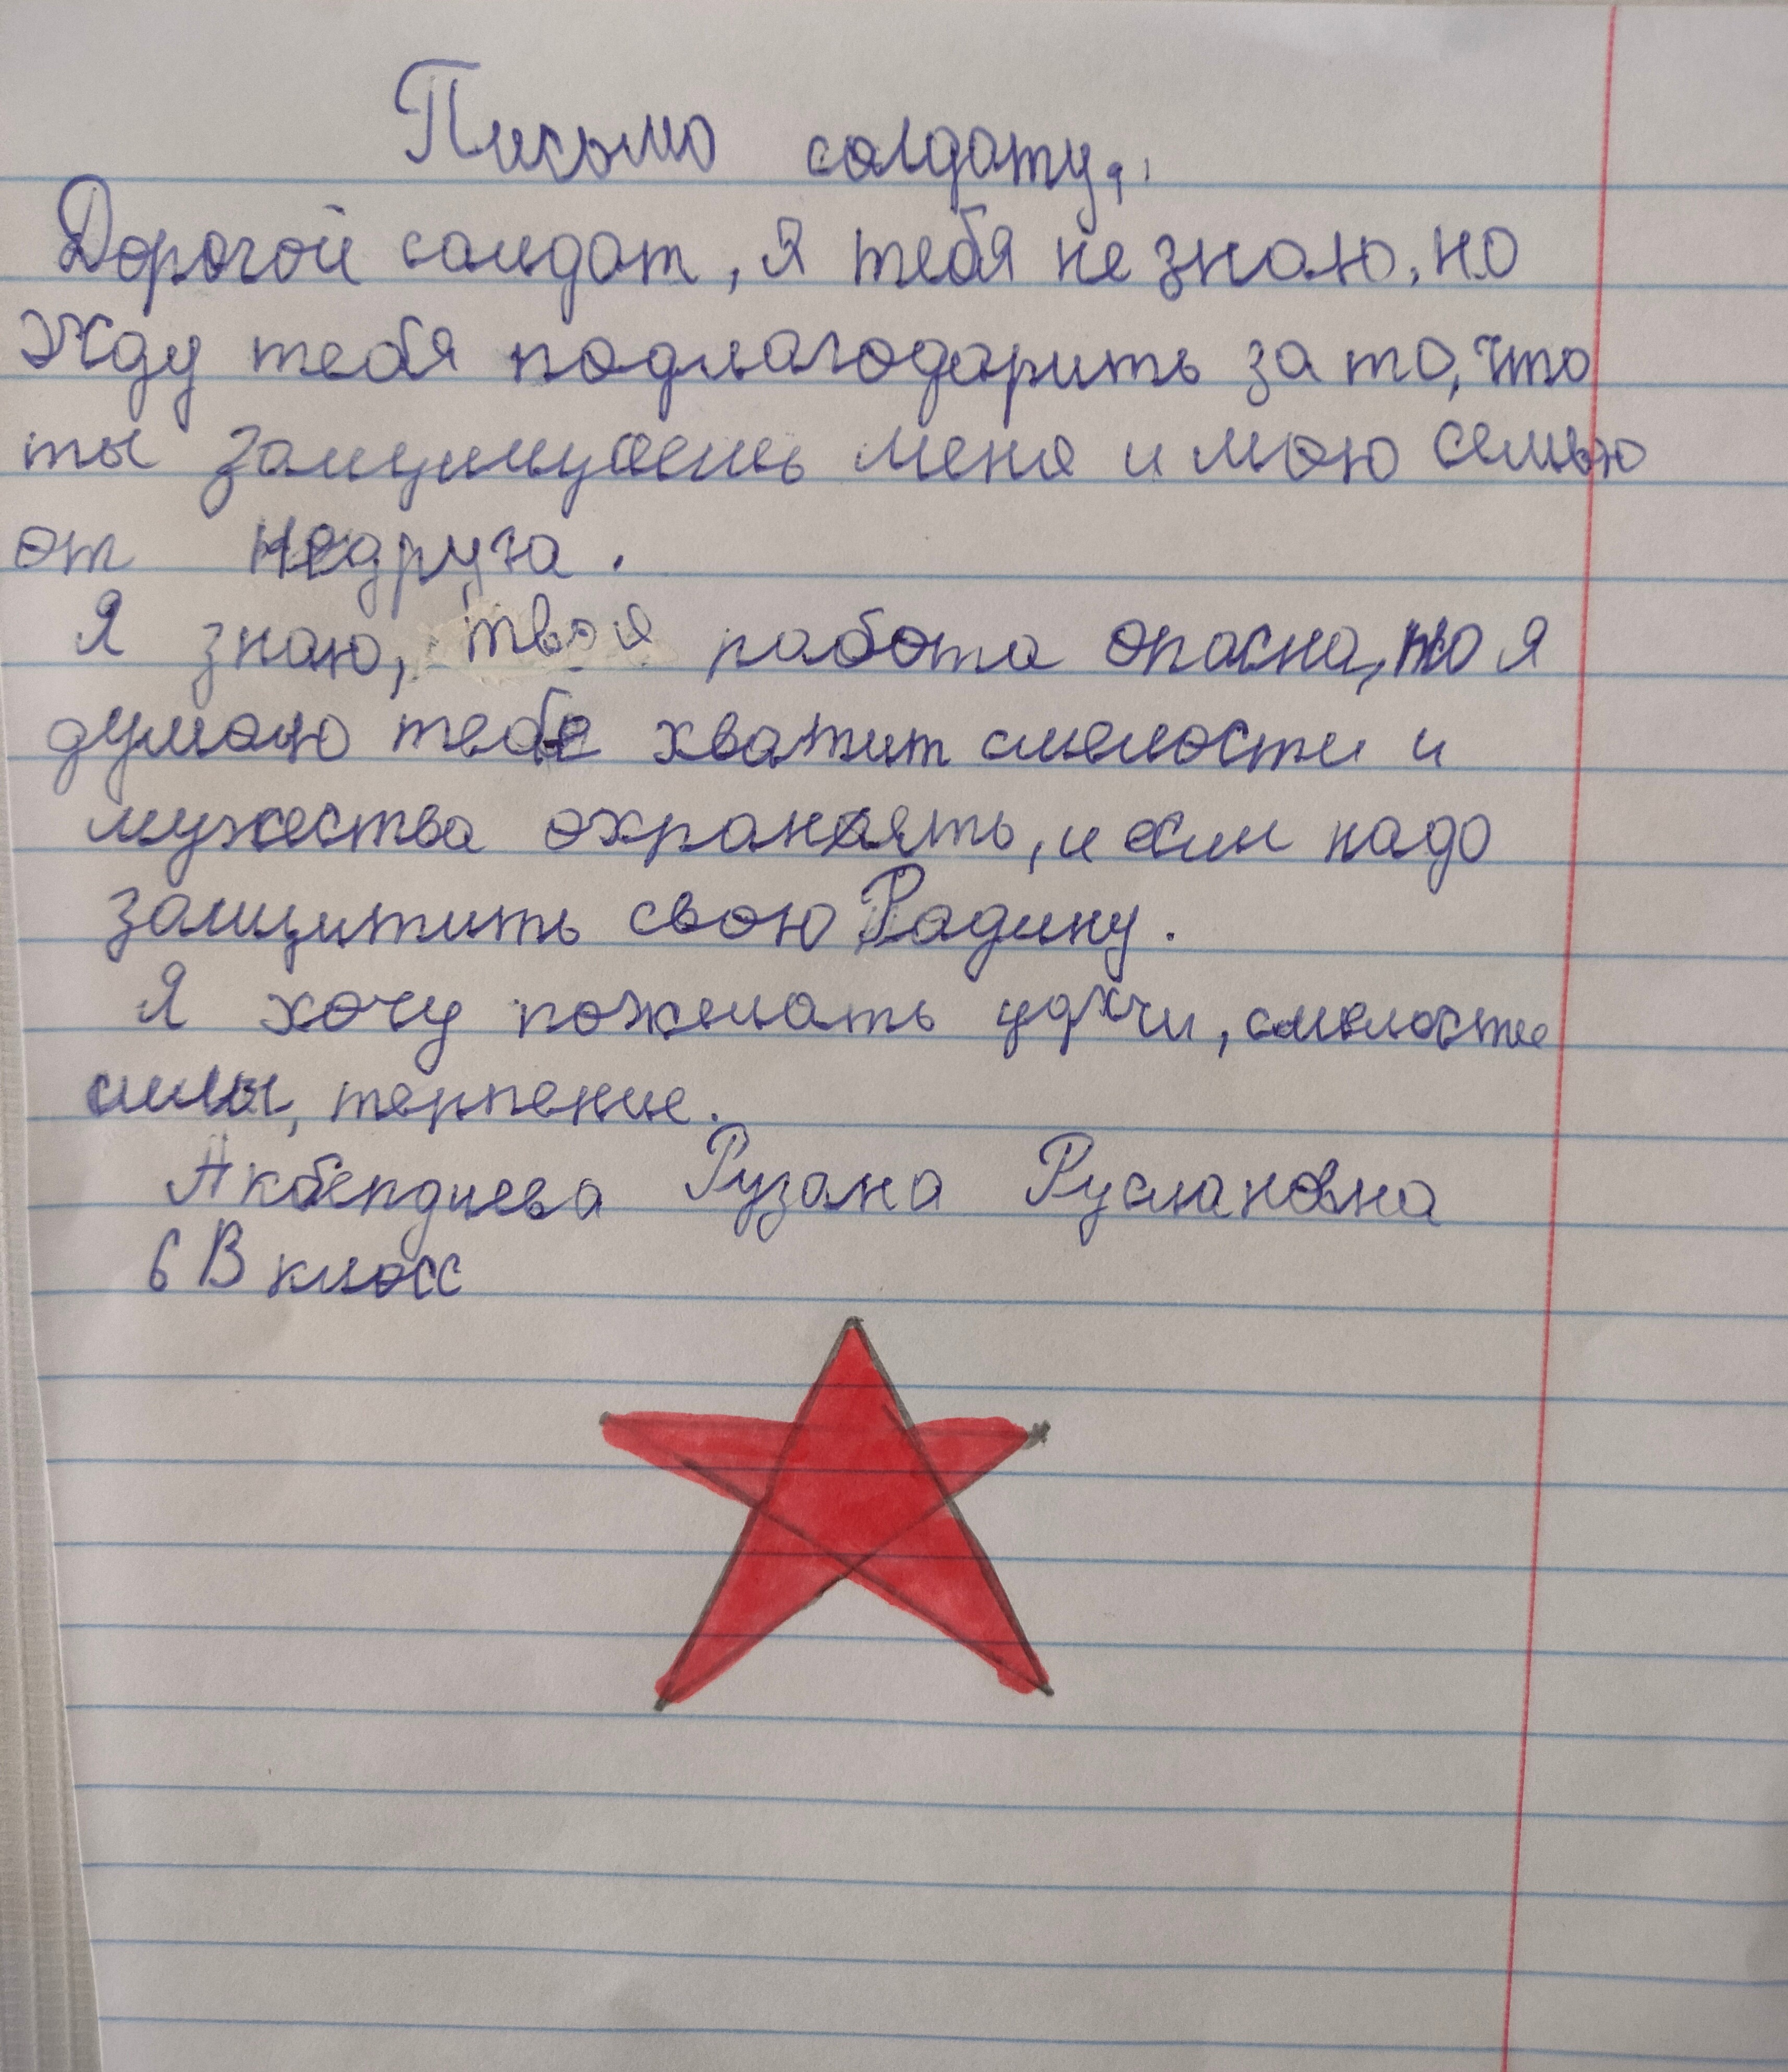 Письмо солдату.
Дорогой солдат, я тебя не знаю, но
Жду тебя подлагодарить за то, что
ты защищаешь меня и мою семью
от недруга.
Я знаю, твоя работа опасна, но я
думаю тебе хватит смелости и
мужества охранять, и если надо
защитить свою Радину.
Я хочу пожелать удачи, смелости
силы, терпение.
Акбердиева Рузана Руслановна
6 В класс